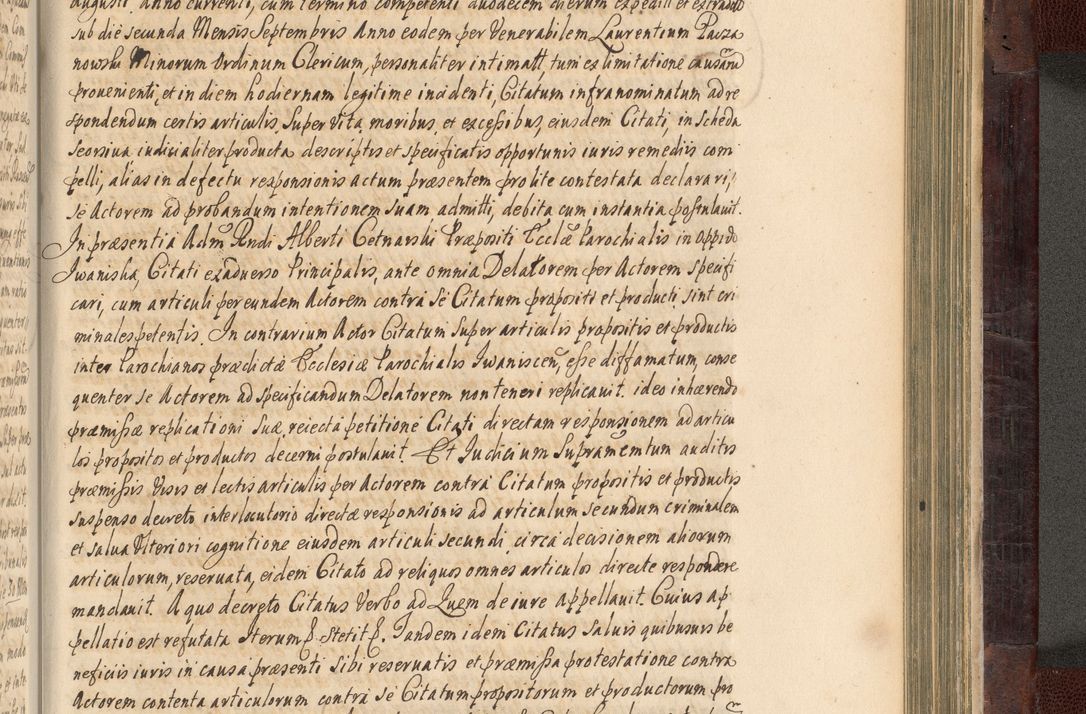 augusti. anno currenti, cum termino competenti duodecem dierum expediti et extradit
sub die secunda Mensis Septembris Anno eodem per Venerabilem Laurentium Pacza
nowski Minorum Ordinum Clericum, personaliter intimatt, tum ex limitatione causarū
prouenienti, et in diem hodiernam legitime incidenti, Citatum infranominatum ad re
spondendum certis articulis, Super Vita, moribus, et excessibus, eiusdem Citati, in Scheda
seorsiua iudicialiter producta descriptis et specificatis opportunis iuris remediis com
pelli, alias in defectu responsionis actum præsentem pro lite contestata declarari,
se Actorem ad probandum intentionem suam admitti, debita cum instantia postulauit.
In præsentia Adm̄ Rndi Alberti Cetnarski Præpositi Ecclæ Parochialis in Oppido
Iwaniska, Citati ex aduerso Principalis, ante omnia Delatorem per Actorem specifi
cari, cum articuli per eundem Actorem contra Se Citatum propositi et producti sint cri
minales petentis. In contrarium Actor Citatum Super articulis propositis et productis
inter Parochianos prædictæ Ecclesiæ Parochialis Iwaniscen̄, esse diffamatum, conse
quenter se Actorem ad specificandum Delatorem non teneri replicauit. ideo inhærendo
præmissæ replicationi suæ, reiecta petitione Citati directam responsionem ad articu
los propositos et productos decerni postulauit. Et Iudicium Supramēntum auditis
præmissis Visis et lectis articulis per Actorem contra Citatum propositis et productis
suspenso decreto interlocutorio directæ responsionis ad articulum secundum criminalem
et salua Vlteriori cognitione eiusdem articuli secundi, circa decisionem aliorum
articulorum, reseruata, eidem Citato ad reliquos omnes articulos directe respondere
mandauit. A quo decreto Citatus Verbo ad Quem de iure appellauit. Cuius ap
pellatio est refutata Iterum stetit. Tandem idem Citatus Saluis quibusuis be
neficiis iuris in causa præsenti Sibi reseruatis et præmissa protestatione contra
Actorem contenta articulorum contra Se Citatum propositorum et productorum pro